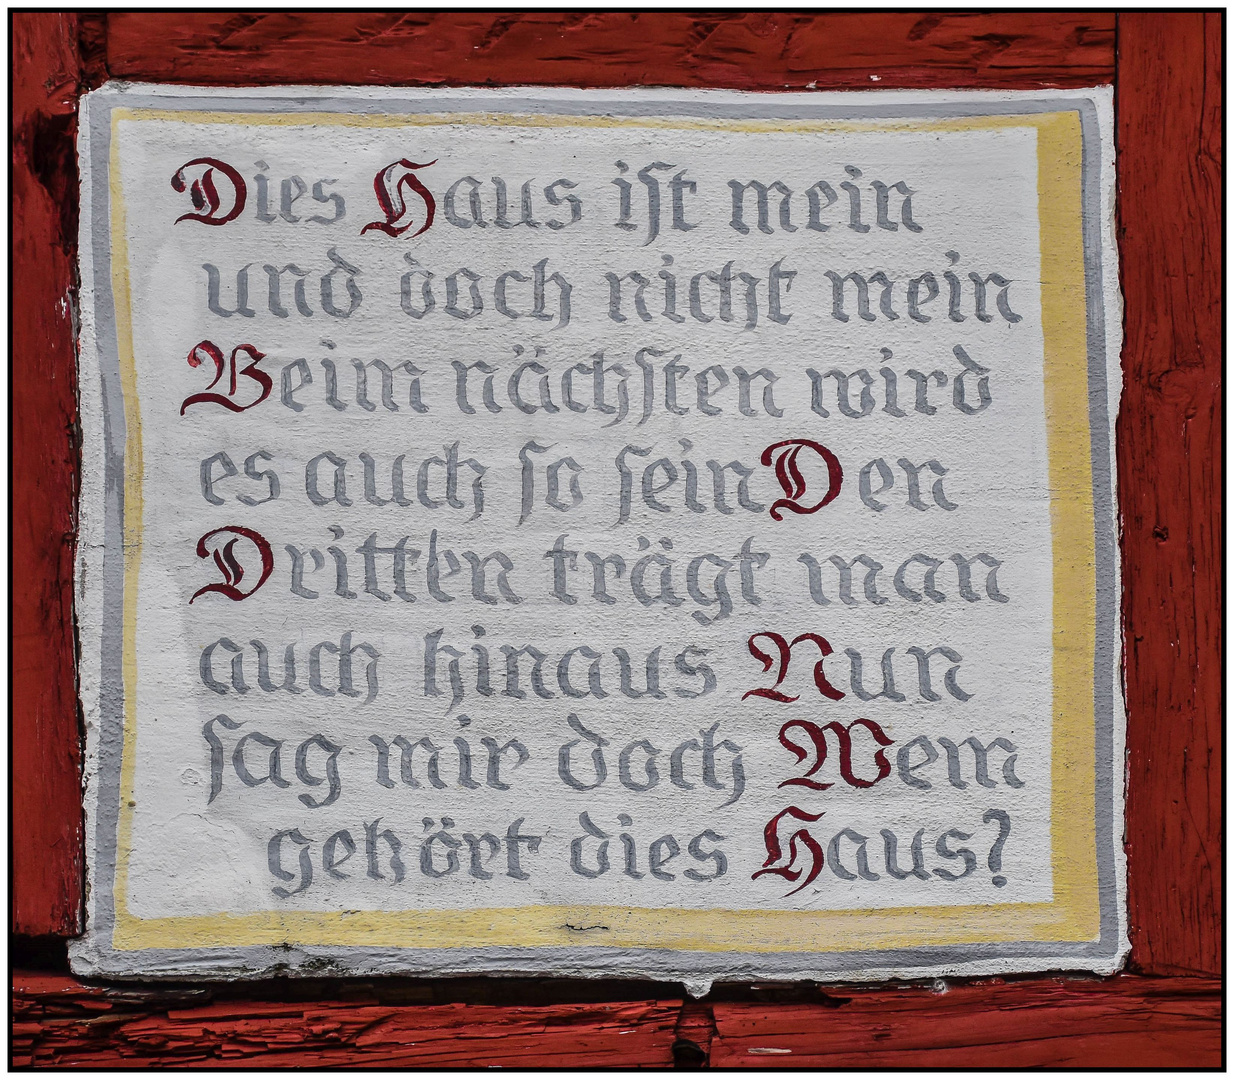 Dies Haus iſt mein
und doch nicht mein
Beim nächſten wird
es auch ſo ſein Den
Dritten trägt man
auch hinaus Nun
ſag mir doch Wem
gehört dies Haus?